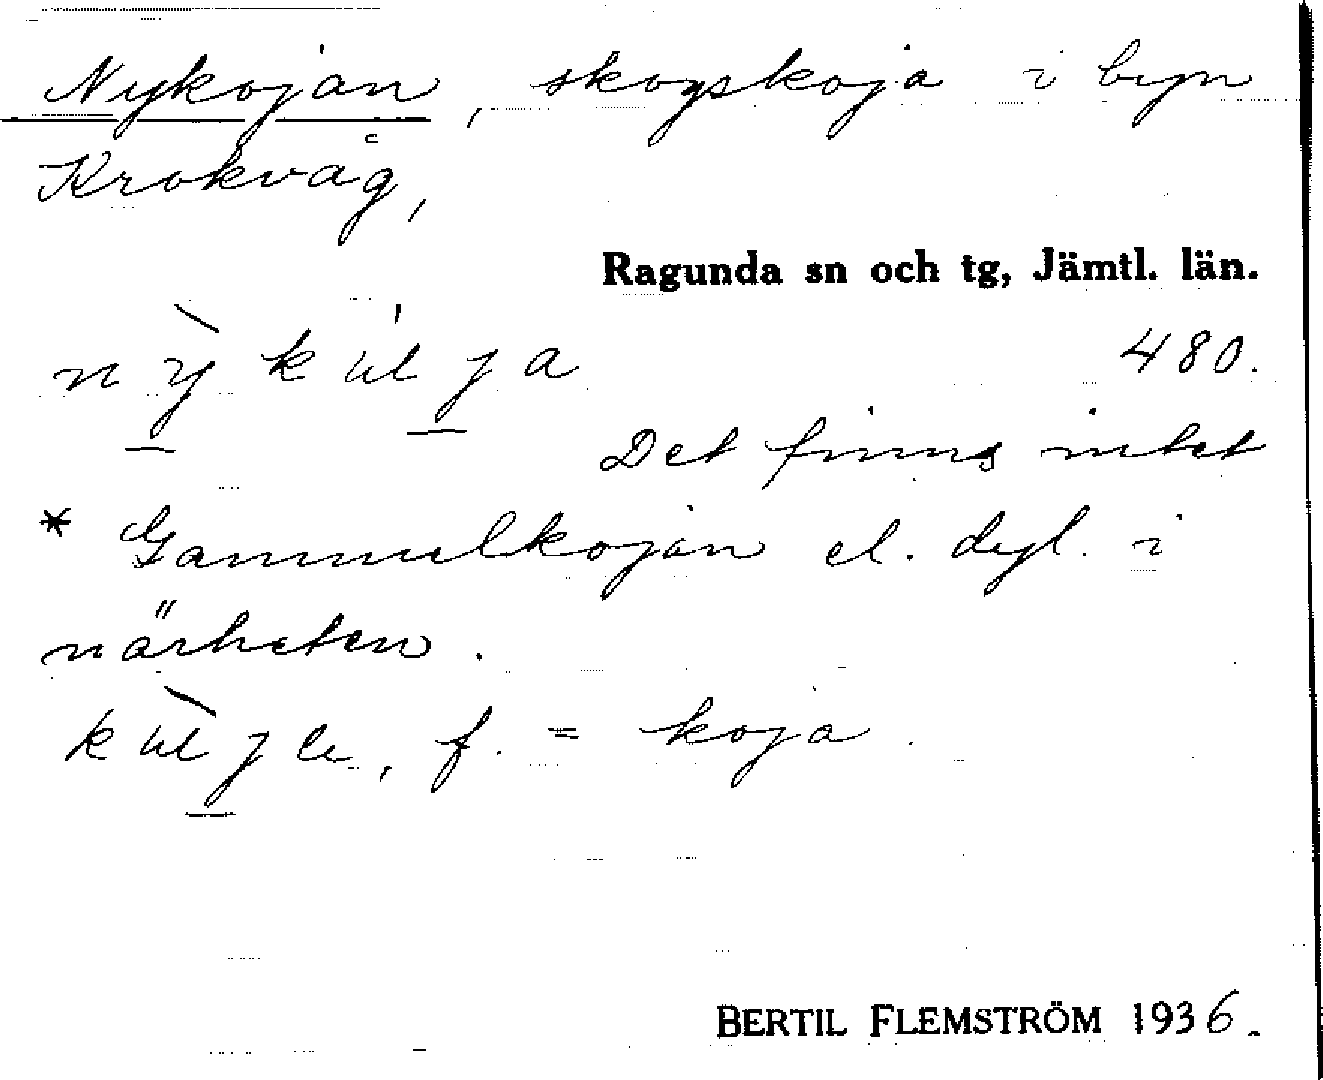 Nykojan, skogskoja i byn
Krokvåg,
Ragunda sn och tg, Jämtl. län.
480.
Det finns intet
* Gammelkojan el. dyl. i
närheten.
f. = koja.
BERTIL FLEMSTRÖM 1936.